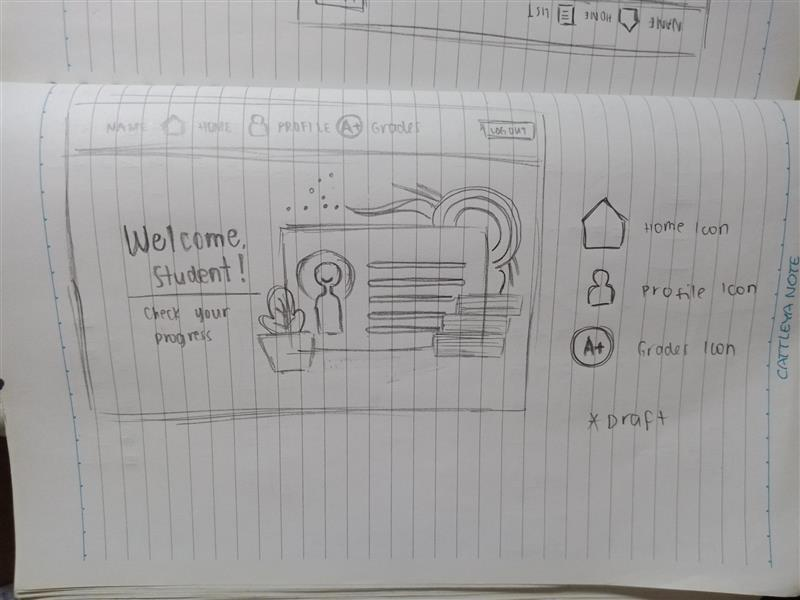 NAME HOME LIST
NAME HOME PROFILE A+ Grades LOG OUT
Welcome,
Student!
Check your
progress
Home Icon
Profile Icon
A+ Grades Icon
*Draft
CATTLEYA NOTE